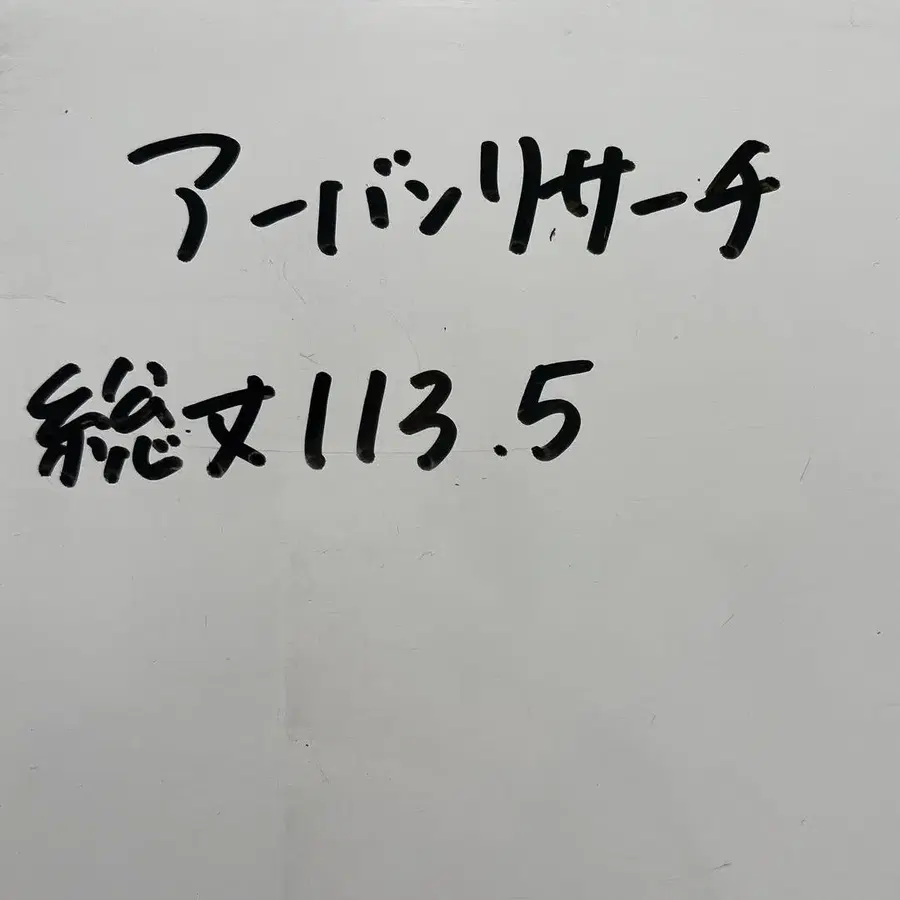 アーバンリサーチ
総丈113.5